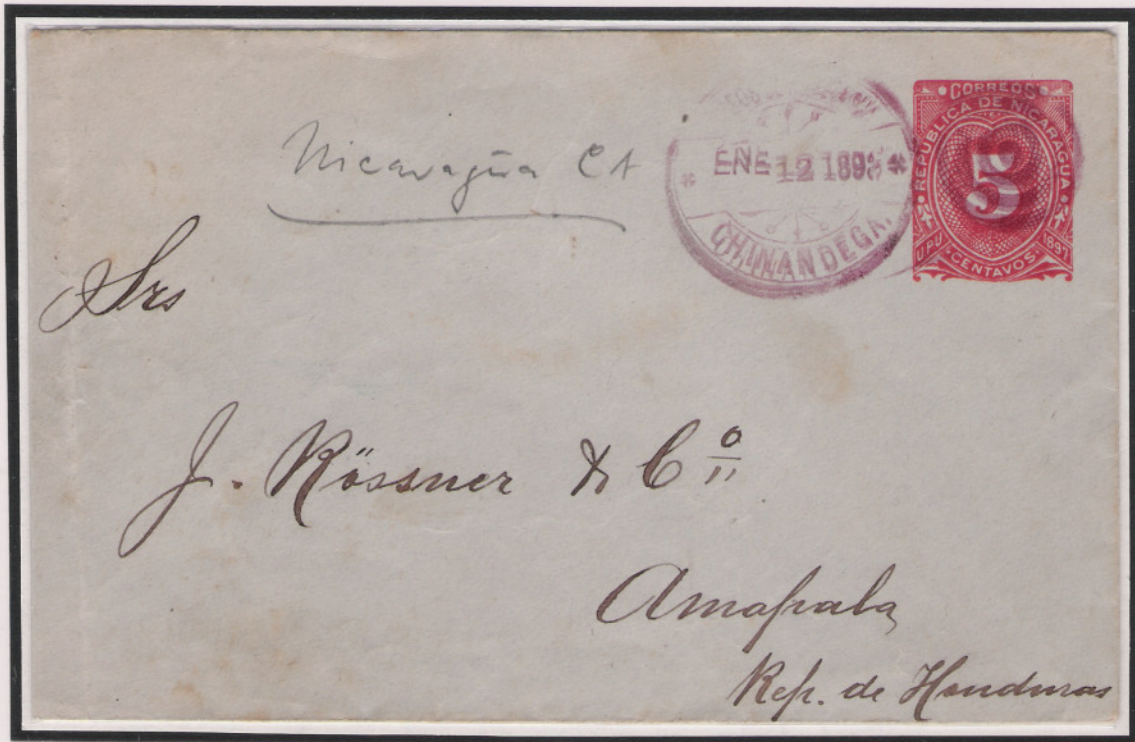 Nicaragua CA
ENE 12 189
CHINANDEGA.
CORREOS
REPUBLICA DE NICARAGUA
5
UPU CENTAVOS 1891
Srs
J. Rössner & Cº
Amapala
Rep. de Honduras